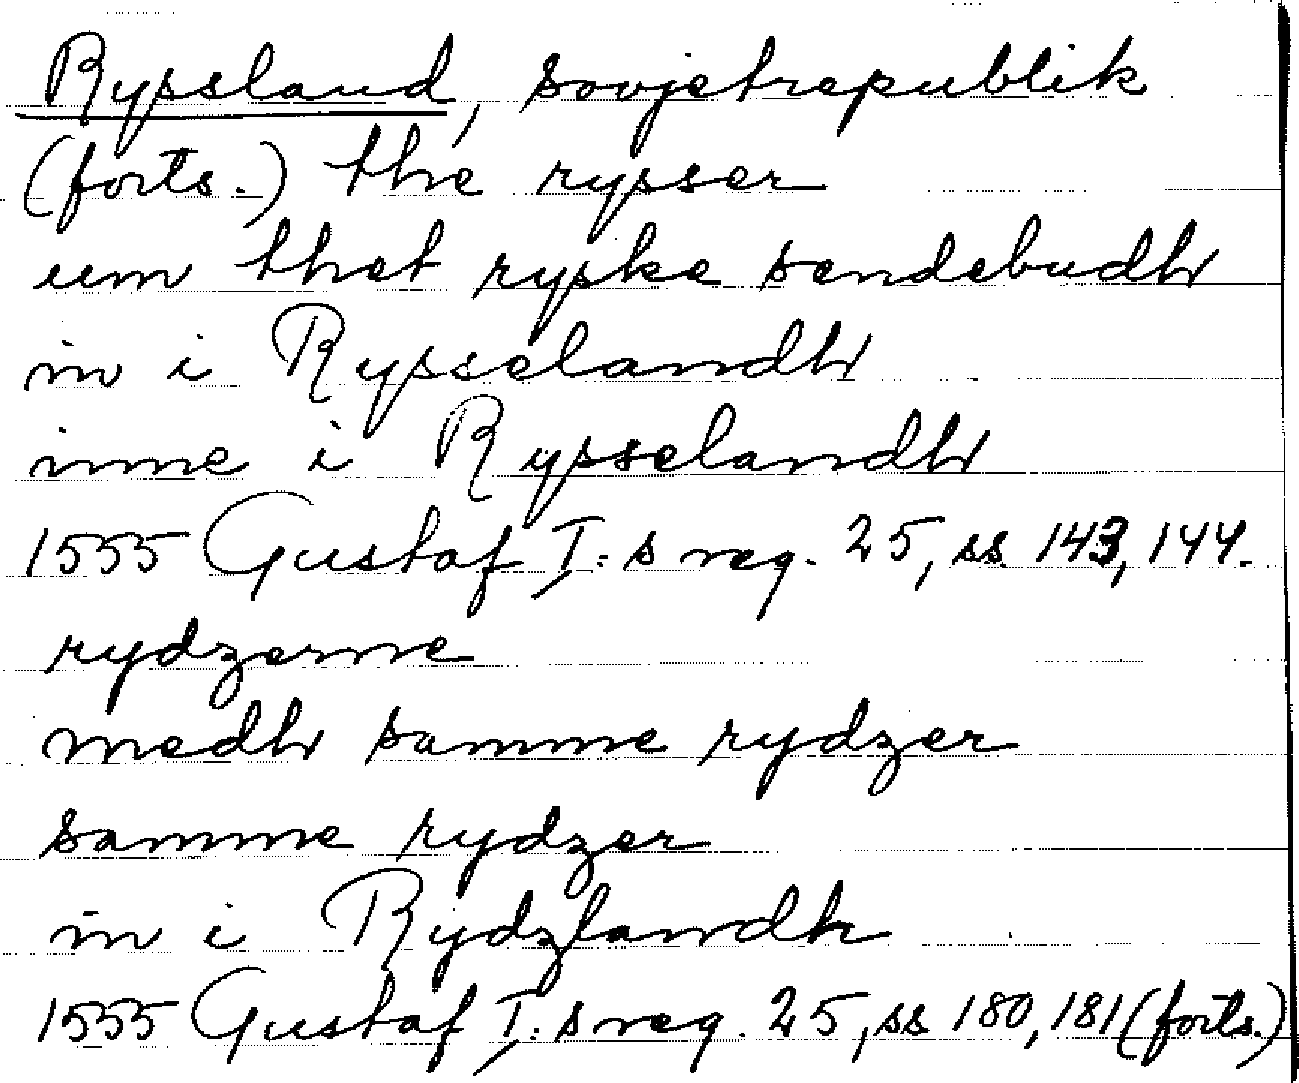 Ryssland, sovjetrepublik
(forts.) the rysser
um thet ryske sendebudh
in i Rysselandh
inne i Rysselandh
1555 Gustaf I:s reg. 25, ss 143, 144.
rydzerne
medh samme rydzer
samme rydzer
in i Rydzlandh
1555 Gustaf I:s reg. 25, ss 180, 181 (forts.)